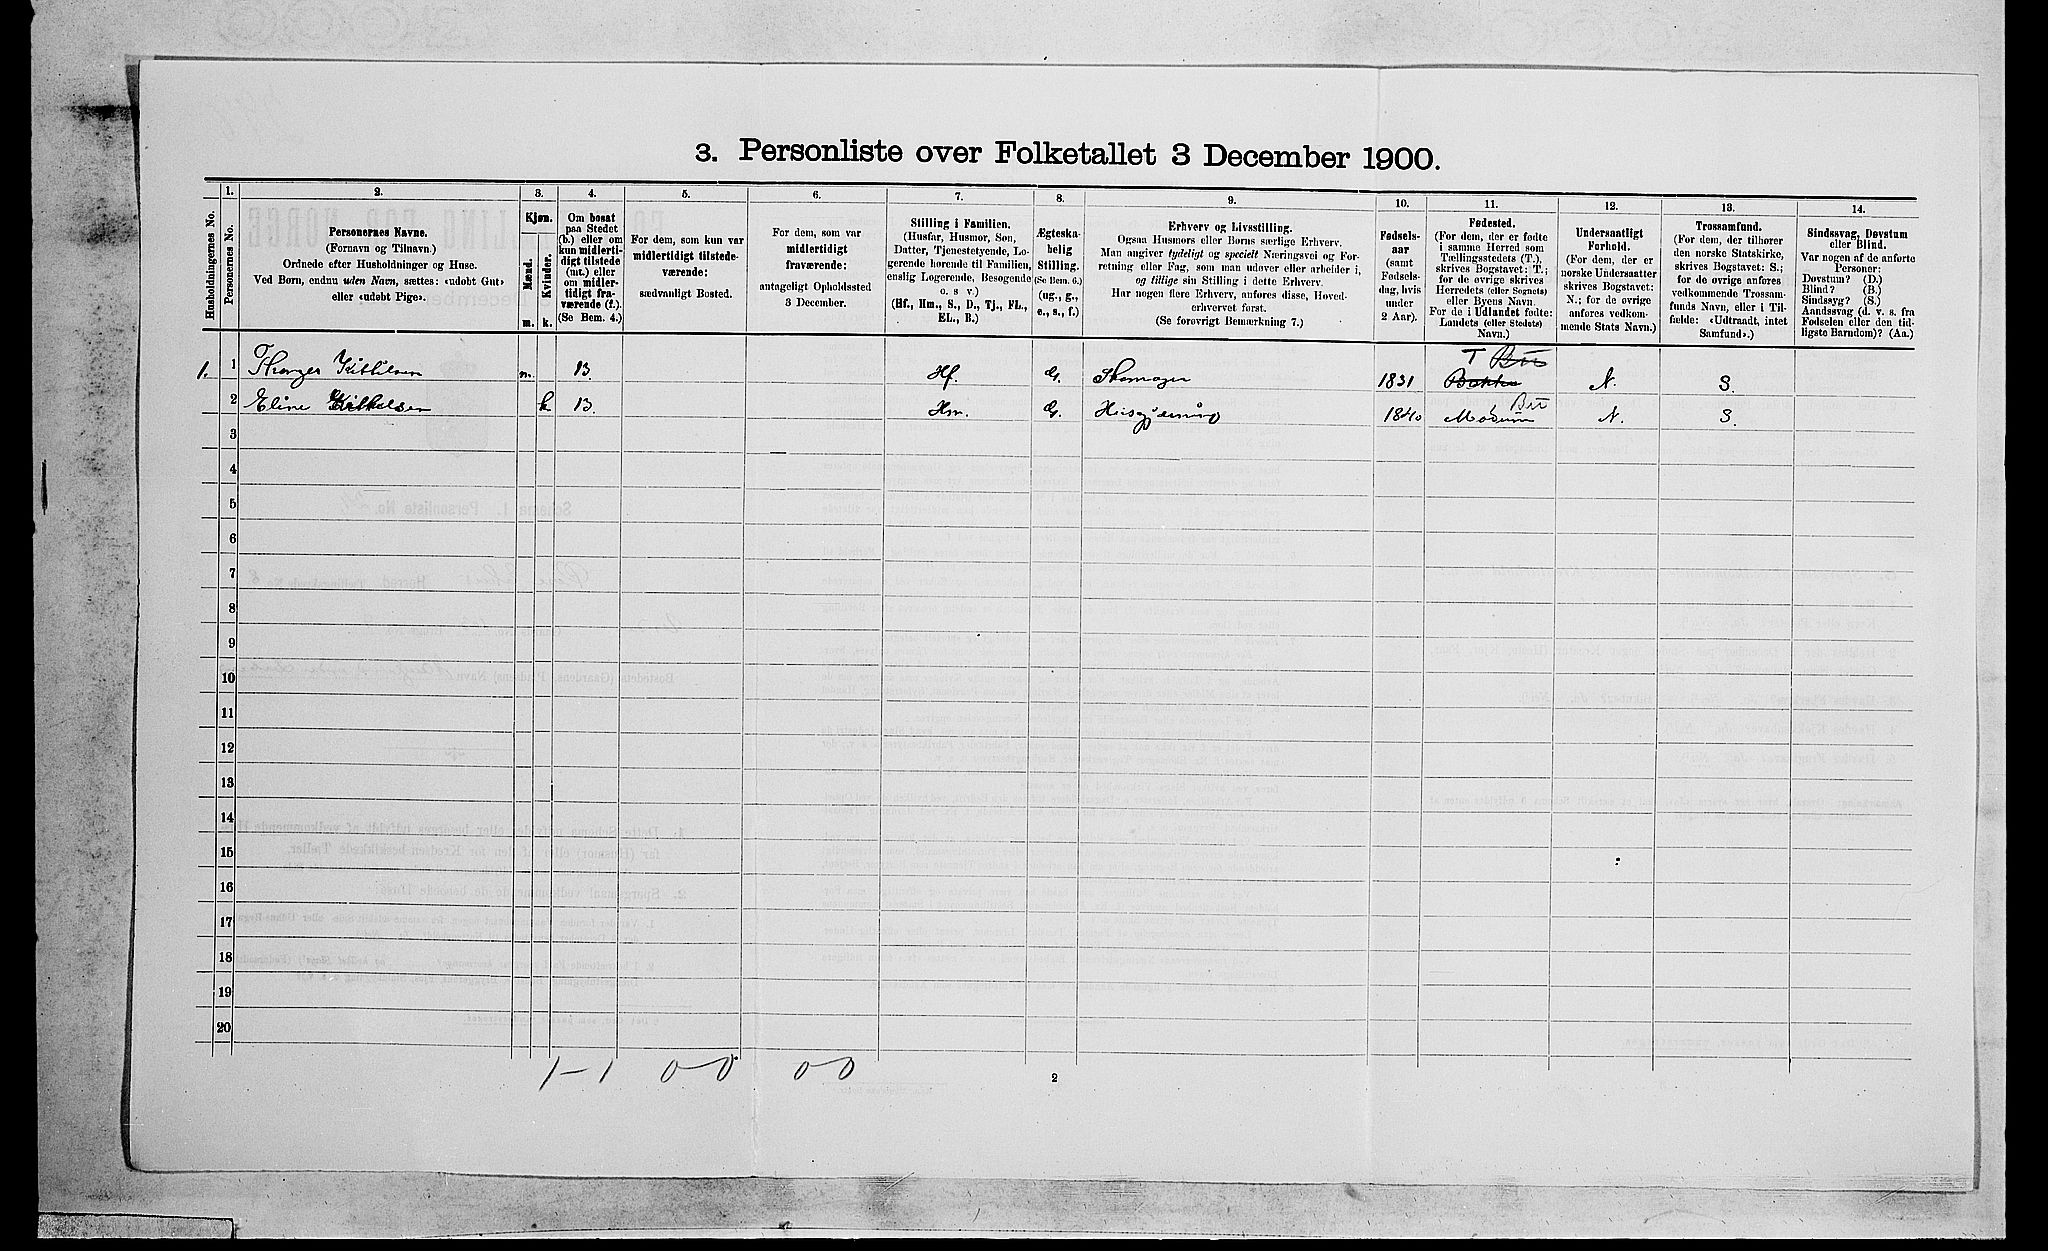 3. Personliste over Folketallet 3 December 1900.
Husholdningernes No.
1.
Personernes No.
2.
Personernes Navne.
(Fornavn og Tilnavn.)
Ordnede efter Husholdninger og Huse.
Ved Børn, endnu uden Navn, sættes: «udøbt Gut»
eller «udøbt Pige».
3.
Kjøn.
Mænd.
Kvinder.
m. k.
4.
Om bosat
paa Stedet
(b.) eller om
kun midlerti-
digt tilstede
(mt.) eller
om midler-
tidigt fra-
værende (f.).
(Se Bem. 4.)
5.
For dem, som kun var
midlertidigt tilstede-
værende:
sædvanligt Bosted.
6.
For dem, som var
midlertidigt
fraværende:
antageligt Opholdssted
3 December.
7.
Stilling i Familien.
(Husfar, Husmor, Søn,
Datter, Tjenestetyende, Lo-
gerende hørende til Familien,
enslig Logerende, Besøgende
o. s v.)
(Hf., Hm., S., D., Tj., FL.,
EL., B.)
8.
Ægteska-
belig
Stilling.
(Se Bem. 6.)
(ug., g.,
e., s., f.)
9.
Erhverv og Livsstilling.
Ogsaa Husmors eller Børns særlige Erhverv.
Man angiver tydeligt og specielt Næringsvei og For-
retning eller Fag, som man udøver eller arbeider i,
og tillige sin Stilling i dette Erhverv.
Har nogen flere Erhverv, anføres disse, Hoved-
erhvervet først.
(Se forøvrigt Bemærkning 7.)
10.
Fødsels-
aar
(samt
Fødsels-
dag, hvis
under
2 Aar).
11.
Fødested.
(For dem, der er fødte
i samme Herred som
Tællingsstedets (T.),
skrives Bogstavet: T.;
for de øvrige skrives
Herredets (eller Sognets)
eller Byens Navn.
For de i Udlandet fødte:
Landets (eller Stedets)
Navn.)
12.
Undersaatligt
Forhold.
(For dem, der er
norske Undersaatter
skrives Bogstavet:
N.; for de øvrige
anføres vedkom-
mende Stats Navn.)
13.
Trossamfund.
(For dem, der tilhører
den norske Statskirke,
skrives Bogstavet: S.;
for de øvrige anføres
vedkommende Trossam-
funds Navn, eller i Til-
fælde: «Udtraadt, intet
Samfund».)
14.
Sindssvag, Døvstum
eller Blind.
Var nogen af de anførte
Personer:
Døvstum? (D.)
Blind? (B.)
Sindssyg? (S.)
Aandssvag (d. v. s. fra
Fødselen eller den tid-
ligste Barndom)? (Aa.)
1. 1 Kittilsen m. B. Hf. G. Skomager 1831 T N. S.
2 Eline k B. Hm. G. Husgjerning 1840 Modum N. S.
3
4
5
6
7
8
9
10
11
12
13
14
15
16
17
18
19
20
1-1 0-0 0-0
2